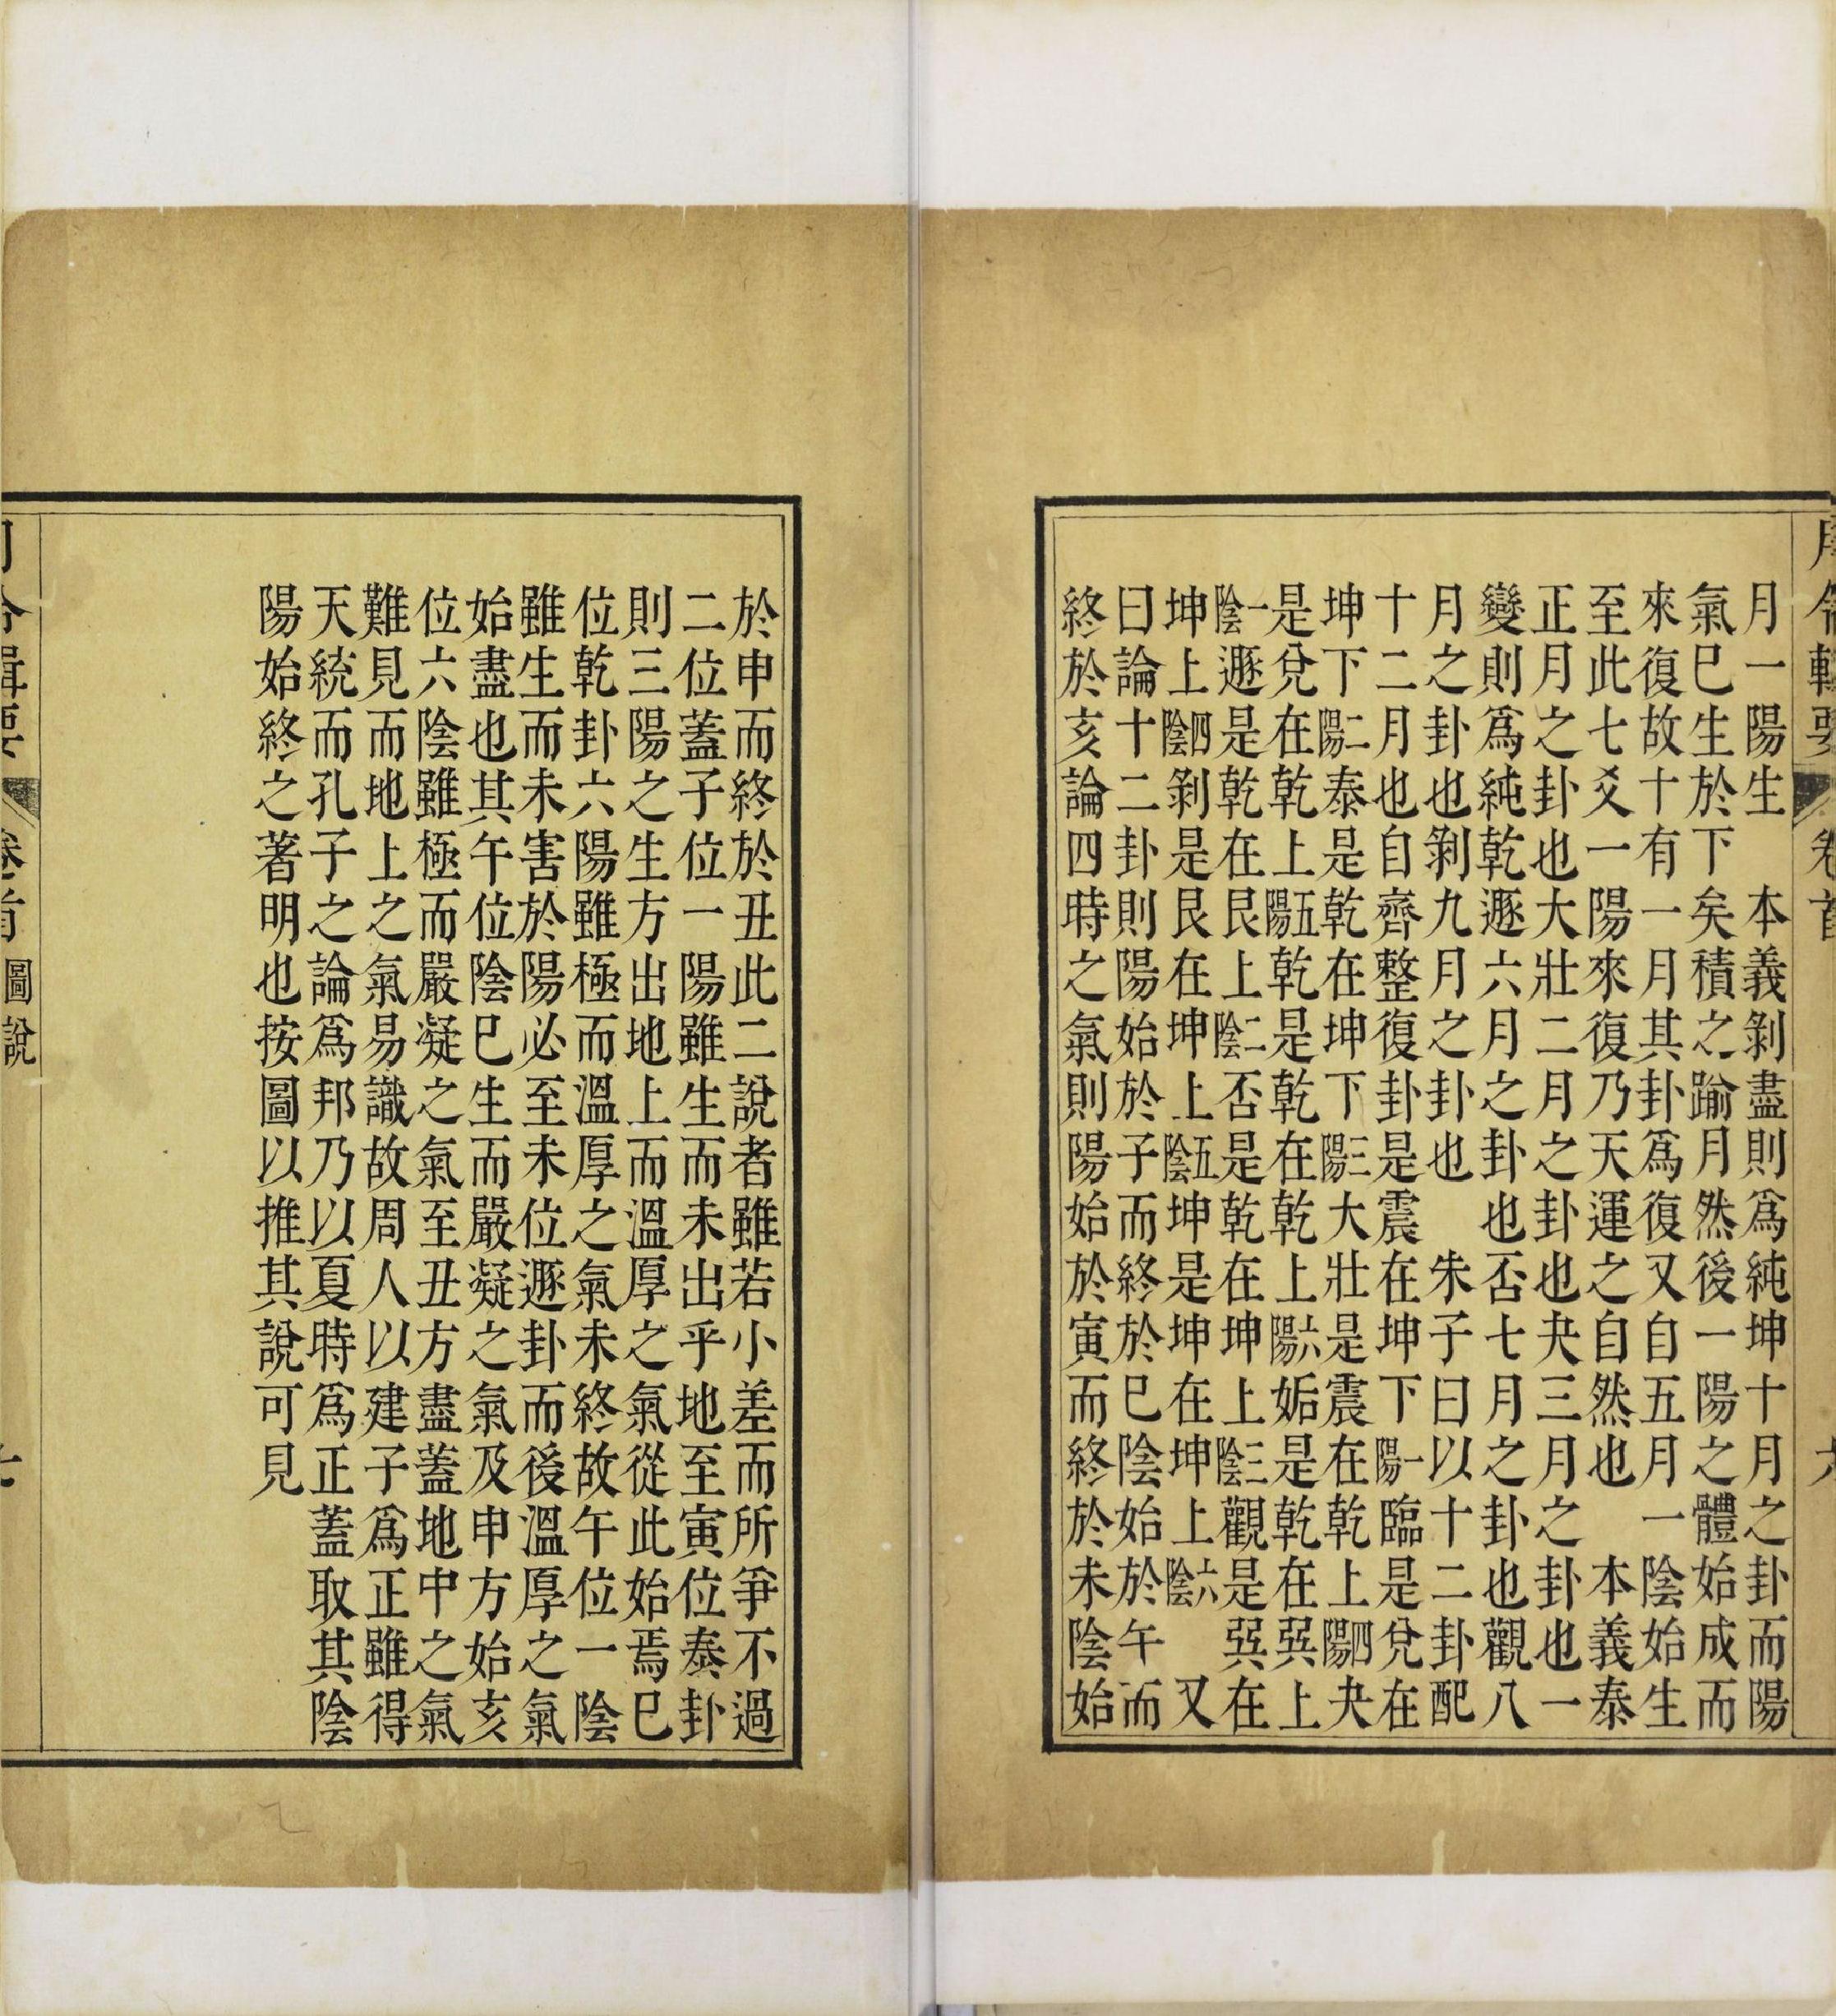 月令輯要 卷首
月一陽生 本義剝盡則爲純坤十月之卦而陽
氣巳生於下矣積之踰月然後一陽之體始成而
來復故十有一月其卦爲復又自五月一陰始生
至此七爻一陽來復乃天運之自然也 本義泰
正月之卦也大壯二月之卦也夬三月之卦也一
變則爲純乾遯六月之卦也否七月之卦也觀八
月之卦也剝九月之卦也 朱子曰以十二卦配
十二月也自齊整復卦是震在坤下陽一臨是兌在
坤下陽二泰是乾在坤下陽三大壯是震在乾上陽四夬
是兌在乾上陽五乾是乾在乾上陽六姤是乾在巽上
陰一遯是乾在艮上陰二否是乾在坤上陰三觀是巽在
坤上陰四剝是艮在坤上陰五坤是坤在坤上陰六 又
曰論十二卦則陽始於子而終於巳陰始於午而
終於亥論四時之氣則陽始於寅而終於未陰始
於申而終於丑此二說者雖若小差而所爭不過
二位蓋子位一陽雖生而未出乎地至寅位泰卦
則三陽之生方出地上而溫厚之氣從此始焉巳
位乾卦六陽雖極而溫厚之氣未終故午位一陰
雖生而未害於陽必至未位遯卦而後溫厚之氣
始盡也其午位陰巳生而嚴凝之氣及申方始亥
位六陰雖極而嚴凝之氣至丑方盡蓋地中之氣
難見而地上之氣易識故周人以建子爲正雖得
天統而孔子之論爲邦乃以夏時爲正蓋取其陰
陽始終之著明也按圖以推其說可見
月令輯要 卷首 圖說